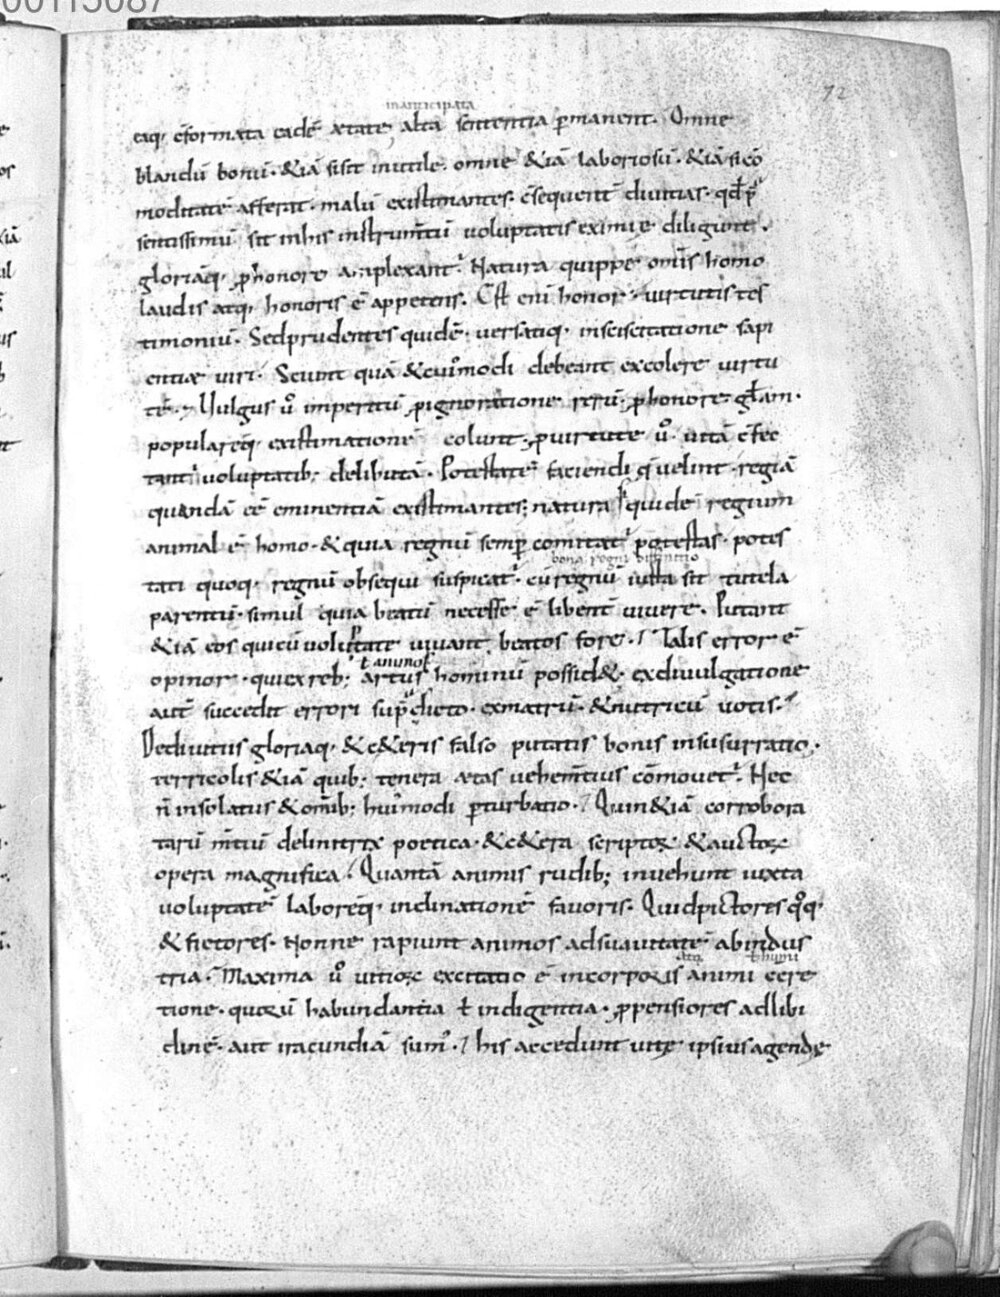 00115087
72
mancipata
eaq; c̄formata eadē ætate, alta sententia ꝑmanent. Omne
blandū bonū. &iā si sit inutile. omne &iā laboriosū. &iā si cō
moditatē afferat. malū existimantes. c̄sequent̄ diuitias. qđ p̄
sentissimū sit in his instrum̄tū uoluptatis eximię diligunt.
gloriāq; ꝓ honore amplexant̄. Natura quippe om̄is homo
laudis atq; honoris ē appetens. Est eni honor uirtutis tes
timoniū. Sed prudentes quidē. uersatiq; in sciscitatione sapi
entiæ uiri. Sciunt quā & cui᷒modi debeant excolere uirtu
tē. Uulgus ū imperitū ꝓ ignoratione rerū. ꝓ honore gl̄am.
popularēq; existimationē colunt. ꝓ uirtute ū uitā c̄fec
tant̄ uoluptatib; delibutā. Potestatē faciendi q̄ uelint. regiā
quandā eē eminentiā existimantes; natura quidē regium
animal ē homo. & quia regnū semꝑ comitat̄ potestas. potes
bona regni diffinitio
tati quoq; regnū obsequi suspicat̄. cū regnū iusta sit tutela
parentū. simul quia beatū necesse ē libent̄ uiuere. Putant
&iā eos qui cū uoluptate uiuant, beatos fore. Talis error ē
ł animos
opinor. qui ex reb; artus hominū possid&. ex diuulgatione
aut̄ succedit errori sup̄dicto. ex matrū. & nutricū uotis.
De diuitiis gloriaq; & c&eris falso putatis bonis insusurratio.
terricolis &iā quib; tenera ætas uehem̄tius cōmouet̄. Nec
n̄ in solatiis & om̄ib; hui᷒modi ꝑturbatio. Quin &iā corrobora
tarū m̄tiū delinitrix poetica. & c&era scriptoꝝ & auctoꝝ
opera magnifica. Quantā animis rudib; inuehunt iuxta
uoluptatē laborēq; inclinationē fauoris. Quid pictores q̊q;
& fictores. Nonne rapiunt animos ad suauitatē ab indus
atq; ł humi
tria. Maxima ū uitioꝝ excitatio ē in corporis animi cɇre
tione. quoꝝū habundantia ł indigentia. ꝓpensiores ad libi
dinē. aut iracundiā sum᷒. His accedunt uitę ipsius agendę